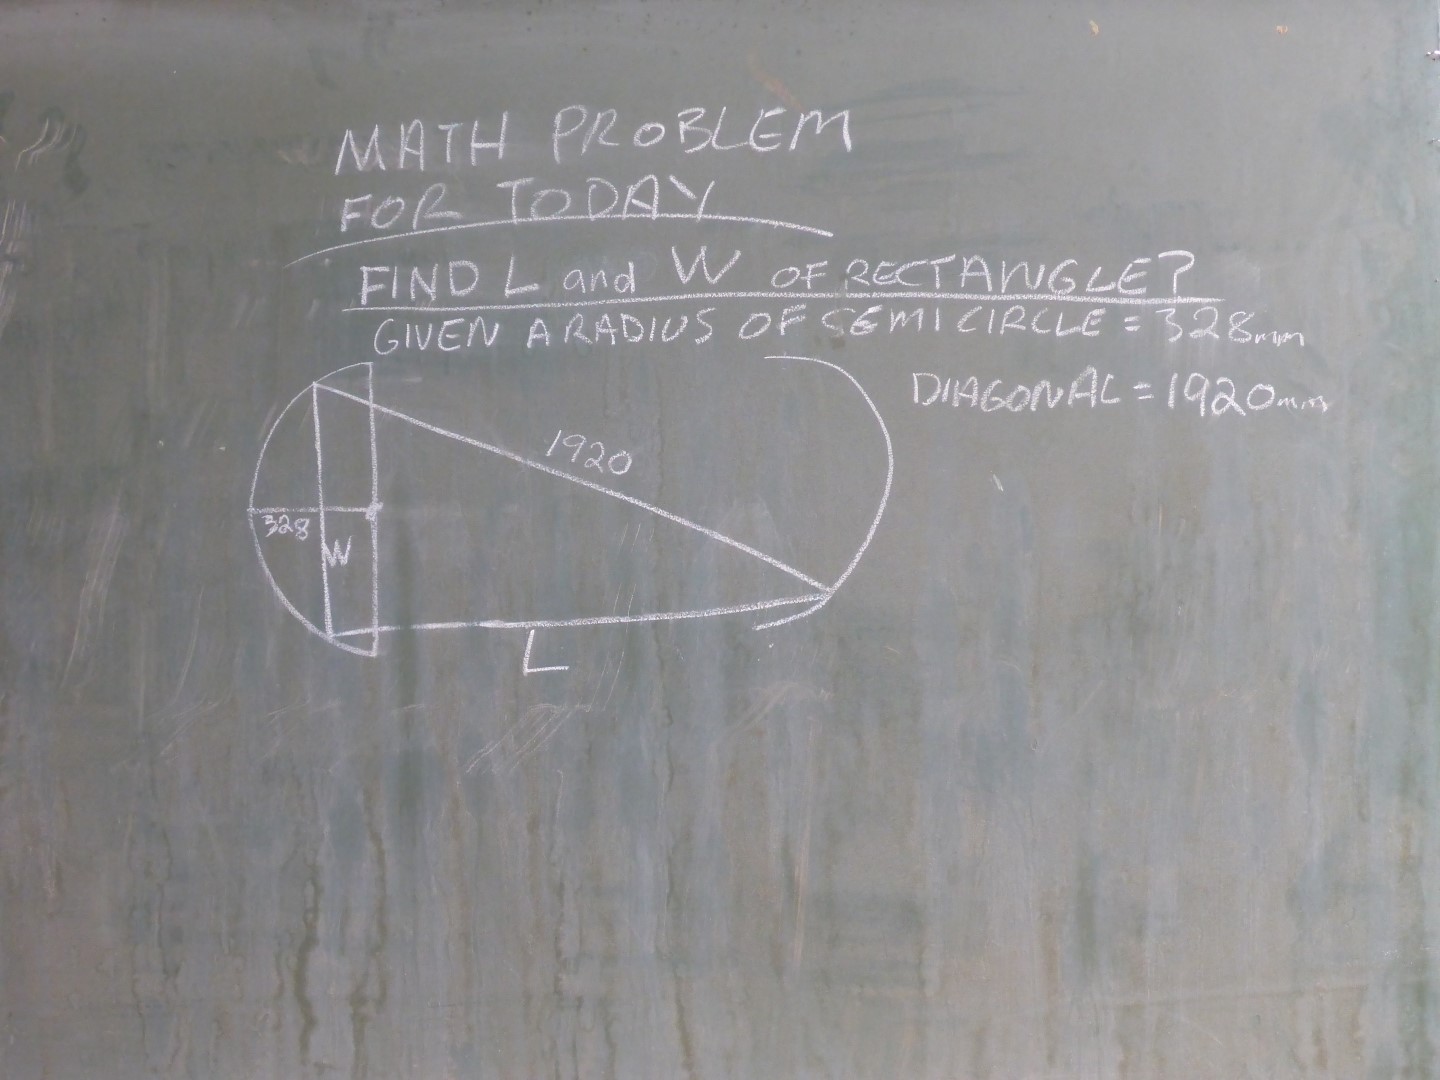 MATH PROBLEM
FOR TODAY
FIND L and W OF RECTANGLE?
GIVEN A RADIUS OF SEMICIRCLE = 328mm
DIAGONAL = 1920mm
1920
328
W
L